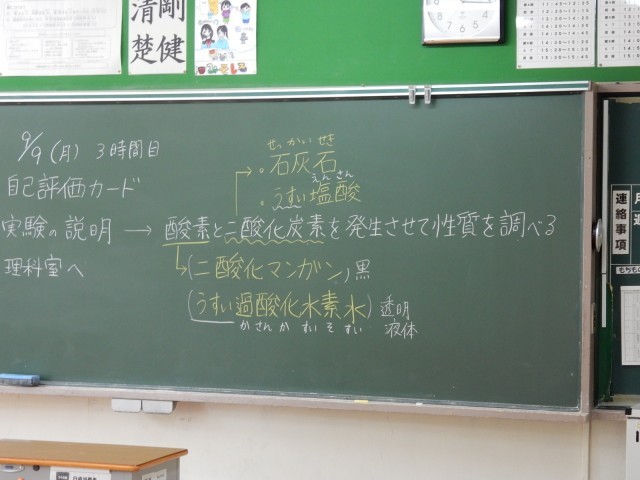 清剛
楚健
9/9(月) 3時間目
自己評価カード
実験の説明 → 酸素と二酸化炭素を発生させて性質を調べる
理科室へ
せっかい せき
・石灰石
えんさん
・うすい塩酸
(二酸化マンガン) 黒
(うすい過酸化水素水) 透明
かさんかすいそすい 液体
連絡事項